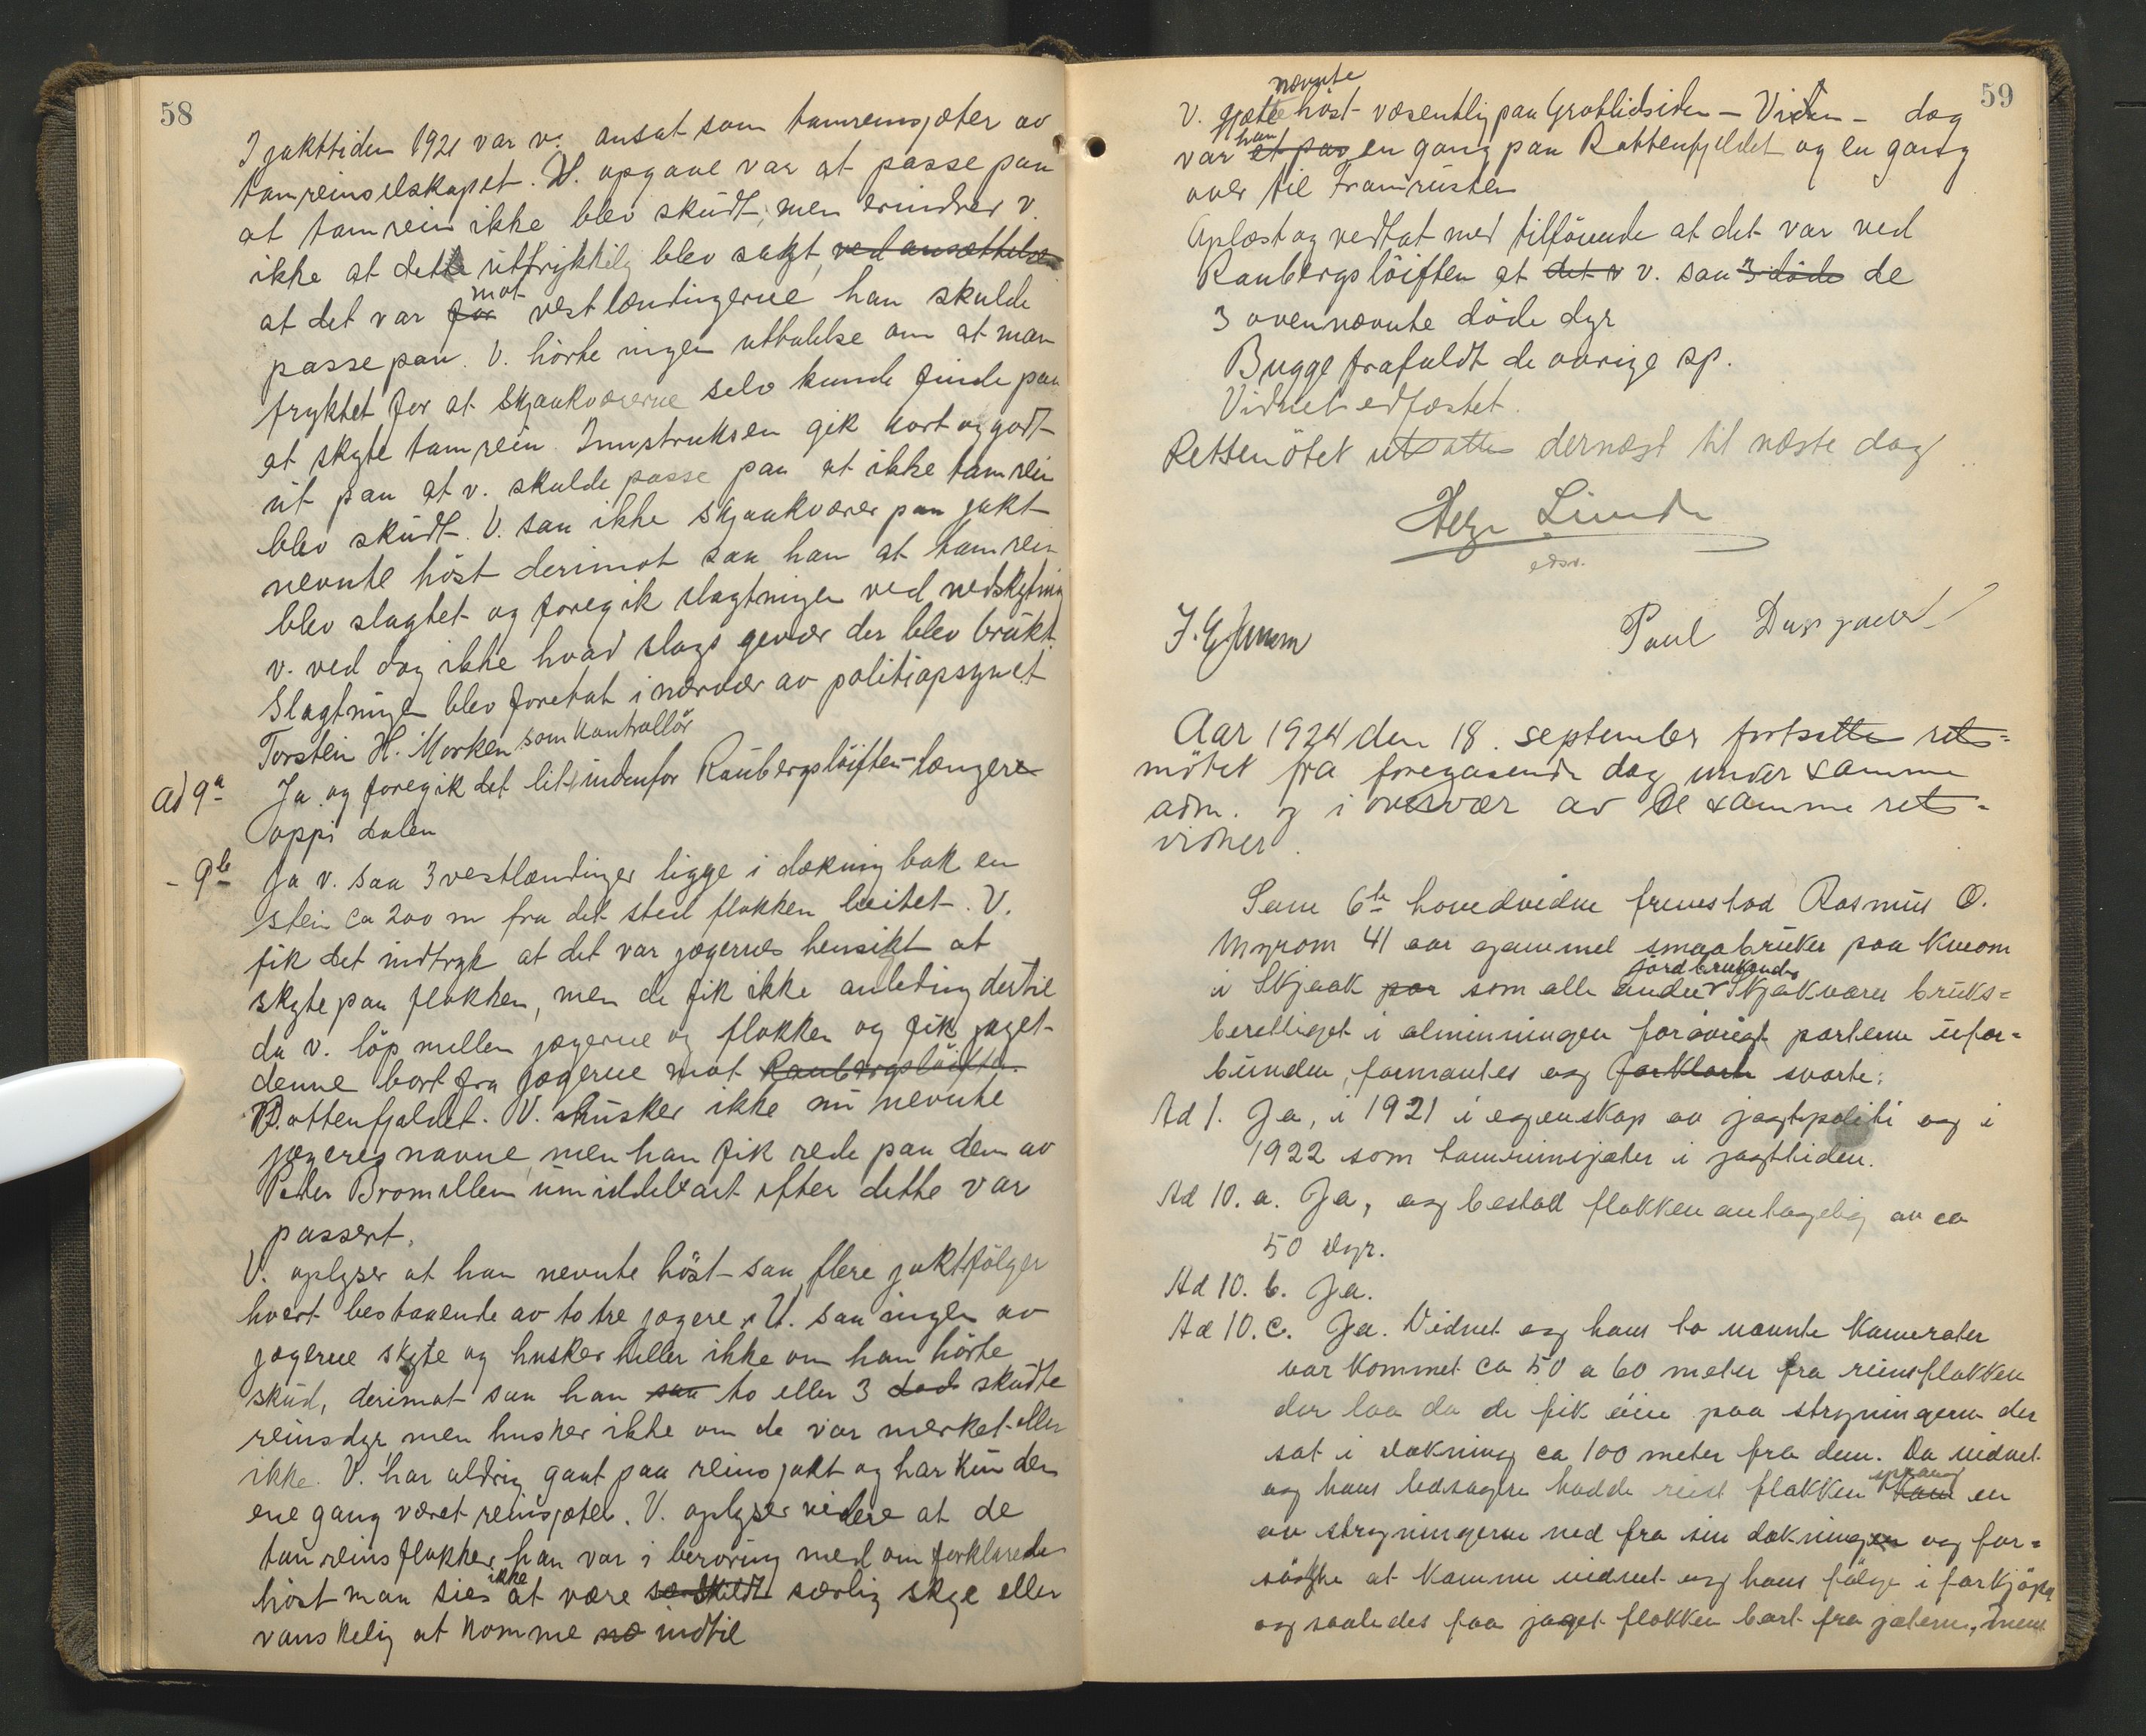 58
I jakttiden 1921 var v. ansat som tamreinsgjæter av
tamreinselskapet. V. opgave var at passe paa
at tamrein ikke blev skudt, men erindrer v.
ikke at dette uttrykkelig blev sagt, ved ansættelsen
mot
at det var for vestlændingerne han skulde
passe paa. V. hörte ingen uttalelse om at man
fryktet for at skjaakværerne selv kunde finde paa
at skyte tamrein. Innstruksen gik kort og godt
ut paa at v. skulde passe paa at ikke tamrein
blev skudt. V. saa ikke skjaakværer paa jakt
nevnte höst derimot saa han at tamrein
blev slagtet og foregik slagtningen ved nedskytning
v. ved dog ikke hvad slags gevær der blev brukt.
Slagtningen blev foretat i nærvær av politiopsynet
Torstein H. Morken som kontrollör
ad 9a Ja og foregik det litt indenfor Raubergslöiften - længere
oppi dalen
- 9b Ja v. saa 3 vestlændinger ligge i dækning bak en
stein ca 200 m fra det sted flokken beitet. V.
fik det indtryk at det var jægernes hensikt at
skyte paa flokken, men de fik ikke anledning dertil
da v. löp mellem jægerne og flokken og fik jaget
denne bort fra jægerne mot Raubergslöiften
Rottenfjeldet. V. husker ikke nu nevnte
jægeres navne, men han fik rede paa dem av
Peder Bromillem umiddelbart efter dette var
passert.
V. oplyser at han nevnte höst saa flere jaktfölger
hvert bestaaende av to tre jægere. V. saa ingen av
jægerne skyte og husker heller ikke om han hörte
skud, derimot saa han saa to eller 3 död skudte
reinsdyr men husker ikke om de var merket eller
ikke. V. har aldrig gaat paa reinsjakt og har kun den
ene gang været reinsgjæter. V. oplyser videre at de
tamreinsflokker han var i beröring med omforklarede
ikke
höst man sies at være særskildt særlig skye eller
vanskelig at komme næ indtil
59
nævnte
V. gjætte höst væsentlig paa Grotlidsiden - Viken - dog
han
var et par en gang paa Rottenfjeldet og en gang
over til Framrusten
Oplæst og vedtat med tilföiende at det var ved
Raubergslöiften at det v v. saa 3 döde de
3 ovennævnte döde dyr
Bugge frafaldt de övrige sp.
Vidnet edfæstet.
Rettemötet utsattes dernæst til næste dag
Helge Lunde
edsv.
Paul
Aar 1924 den 18. september fortsatte rets=
mötet fra foregaaende dag under samme
adm. og i overvær av de samme rets=
vidner.
Som 6te hovedvidne fremstod Rasmus O.
Myrom 41 aar gammel smaabruker paa Kveom
jordbrukende
i Skjaak par som alle andre Skjakværer bruks=
berettiget i alminningen forövrigt parterne ufor=
bunden, formantes og forklarte svarte:
Ad 1. Ja, i 1921 i egenskap av jagtpoliti og i
1922 som tamreinsgjæter i jagttiden.
Ad 10. a. Ja, og bestod flokken antagelig av ca
50 dyr.
Ad 10. b. Ja.
Ad 10. c. Ja. Vidnet og hans to nævnte kamerater
var kommet ca 50 a 60 meter fra reinsflokken
der laa da de fik öie paa stryningerne der
sat i dækning ca 100 meter fra dem. Da vidnet
sprang
og hans ledsagere hadde reist flokken kom en
av stryningerne ned fra sin dækning og for=
sökte at komme vidnet og hans fölge i forkjöpe
og saaledes faa jaget flokken bort fra gjæterne, men